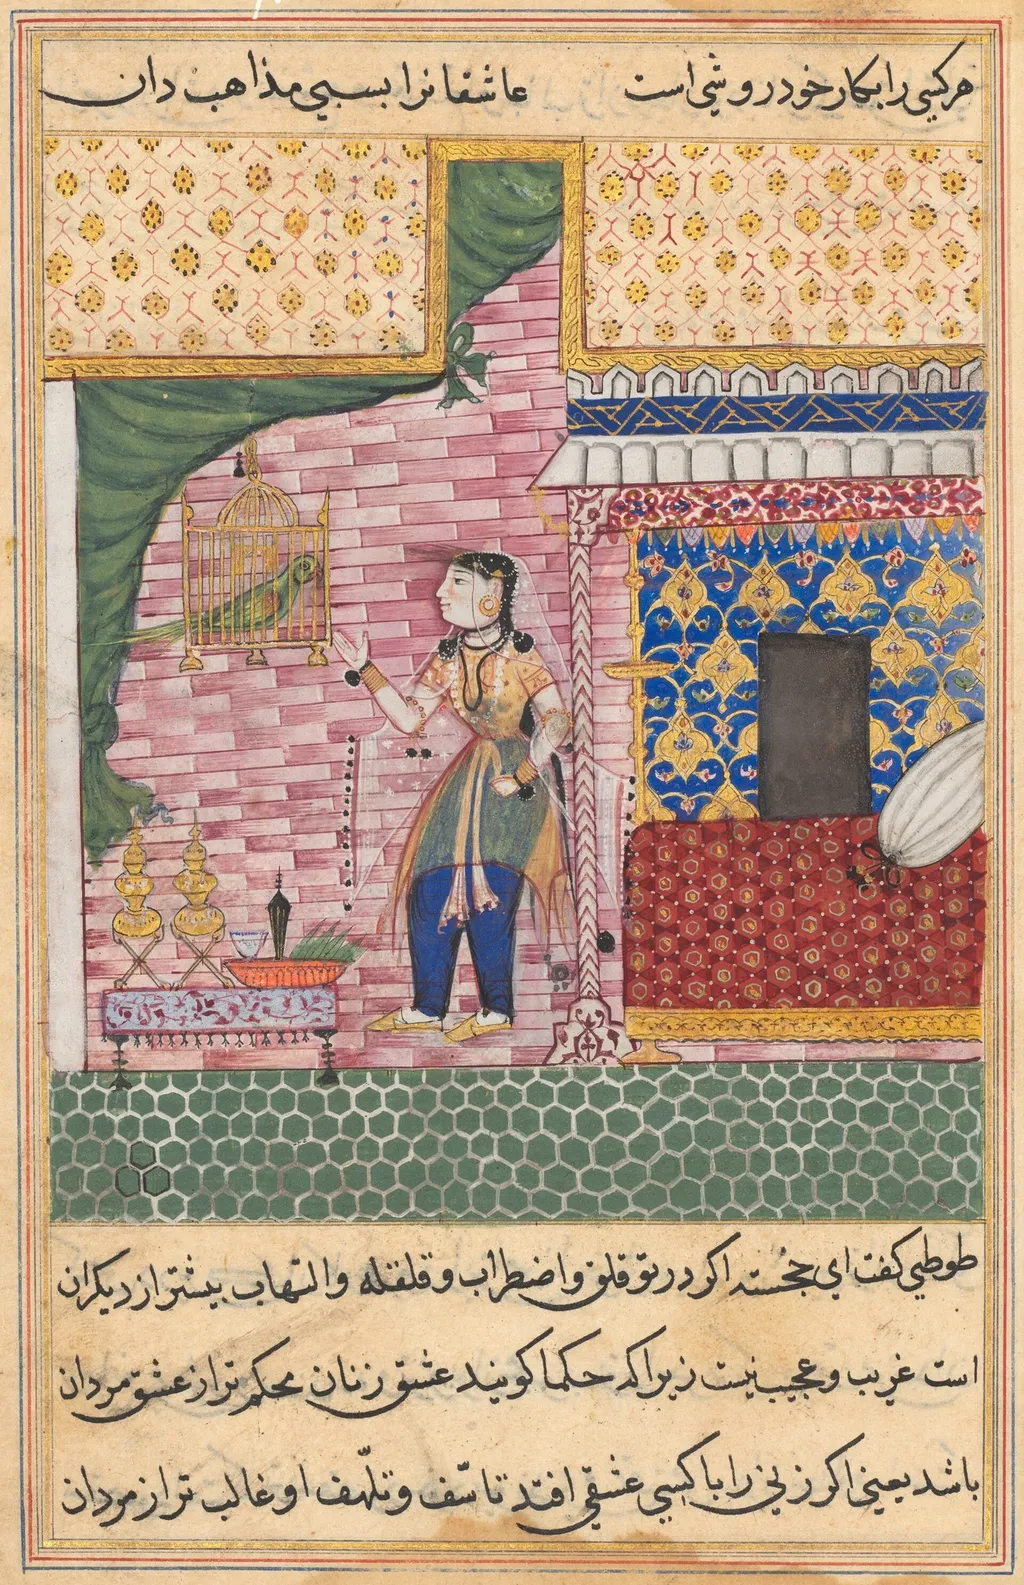 هر کسي را بکار خود روشي است عاشقانرا بسي مذاهب دان
طوطي کفت اي خجسته اکر در تو قلق و اضطراب و قلقله والتهاب بیشتر از دیکران
است غریب و عجیب نیست زیرا که حکما کویند عشق زنان محکم تر از عشق مردان
باشد یعني اکر زني را با کسي عشقي افتد تاسّف و تلهّف او غالب تر از مردان